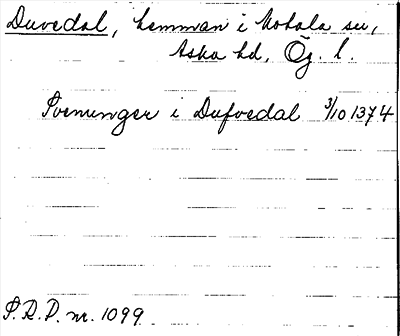 Duvedal, hemman i Motala sn,
Aska hd, Ög. l.
Svenunger i Dufvedal 3/10 1374
S.R.P. nr. 1099